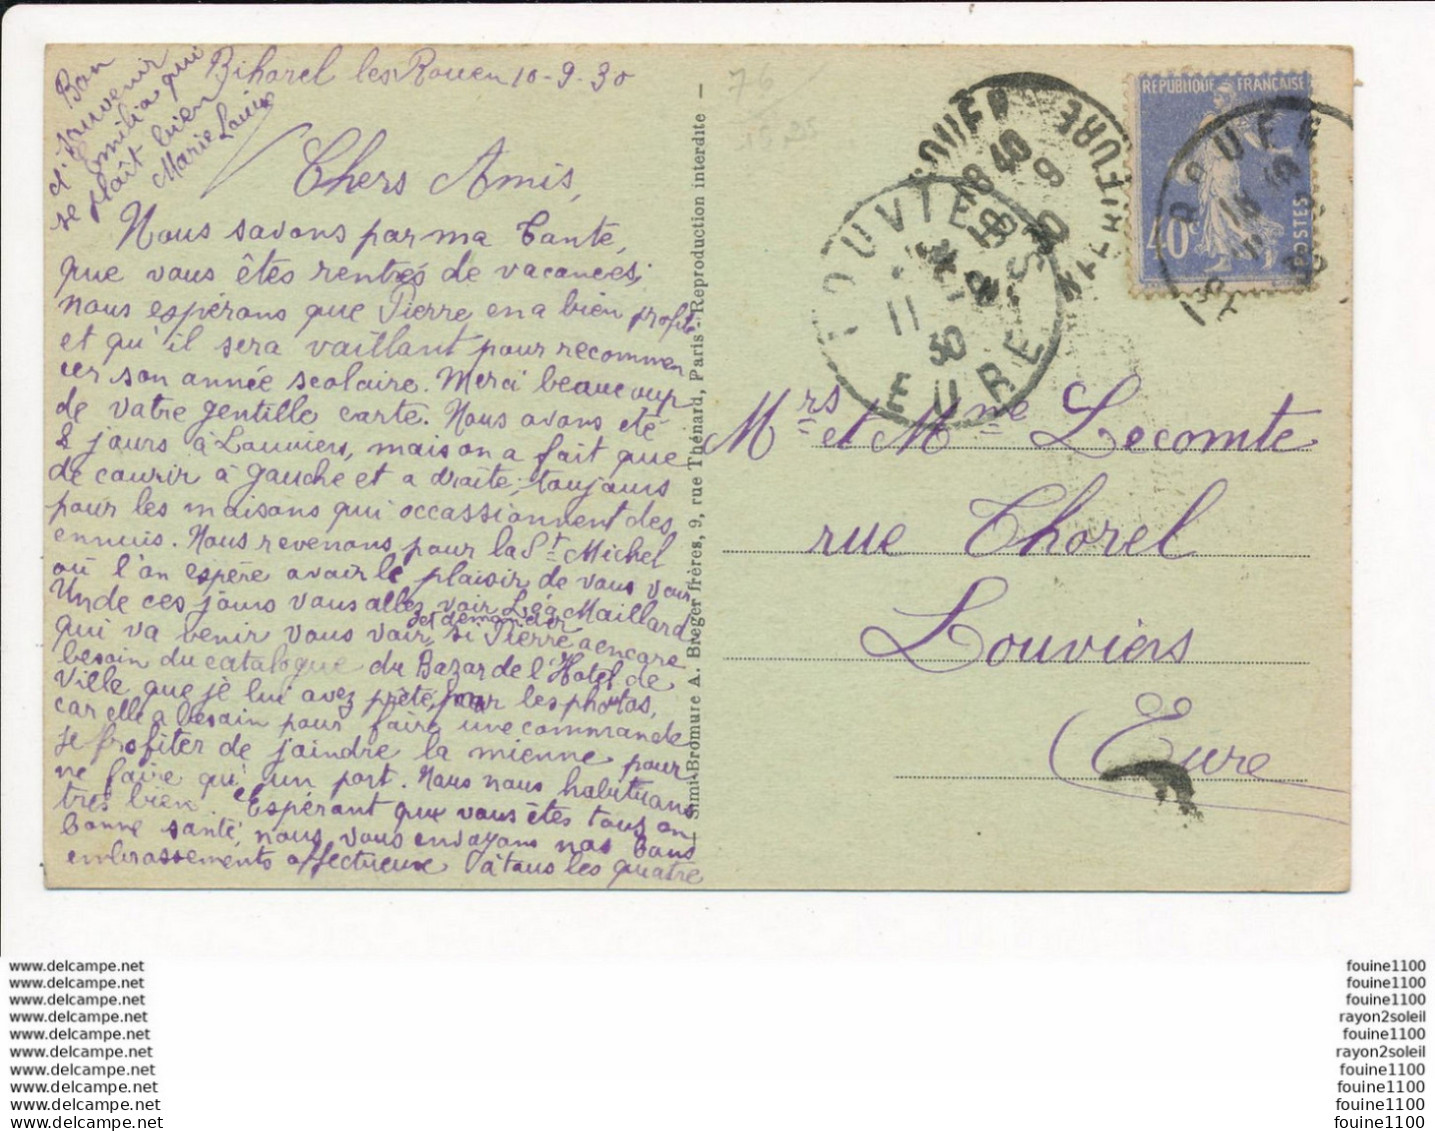 Bon
souvenir
d'Emilia qui
se plaît bien
Marie Louise
Bihorel les Rouen 10-9-30
Chers Amis,
Nous savons par ma Tante,
que vous êtes rentrés de vacances;
nous espérons que Pierre en a bien profité
et qu'il sera vaillant pour recommen
cer son année scolaire. Merci beaucoup
de votre gentille carte. Nous avons été
2 jours à Louviers, mais on a fait que
de courir à gauche et a droite, toujours
pour les maisons qui occassionnent des
ennuis. Nous revenons pour la St Michel
où l'on espère avoir le plaisir de vous voir.
Un de ces jours vous allez voir Léa Maillard
qui va venir vous voir, et demander si Pierre a encore
besoin du catalogue du Bazar de l'Hotel de
Ville que je lui avez prêté, pour les photos,
car elle a besoin pour faire une commande
je profiter de joindre la mienne pour
ne faire qu'un port. Nous nous habituons
très bien. Espérant que vous êtes tous en
bonne santé, nous vous envoyons nos bons
embrassements affectueux à tous les quatre
Simi-Bromure A. Breger frères, 9, rue Thénard, Paris - Reproduction interdite
76
LOUVIERS
11
9
30
EURE
ROUEN
18 40
10 9
30
RÉPUBLIQUE FRANÇAISE
40c
POSTES
Mrs et Mme Lecomte
rue Thorel
Louviers
Eure
www.delcampe.net
www.delcampe.net
www.delcampe.net
www.delcampe.net
www.delcampe.net
www.delcampe.net
www.delcampe.net
www.delcampe.net
www.delcampe.net
www.delcampe.net
fouine1100
fouine1100
fouine1100
rayon2soleil
fouine1100
rayon2soleil
fouine1100
fouine1100
fouine1100
fouine1100